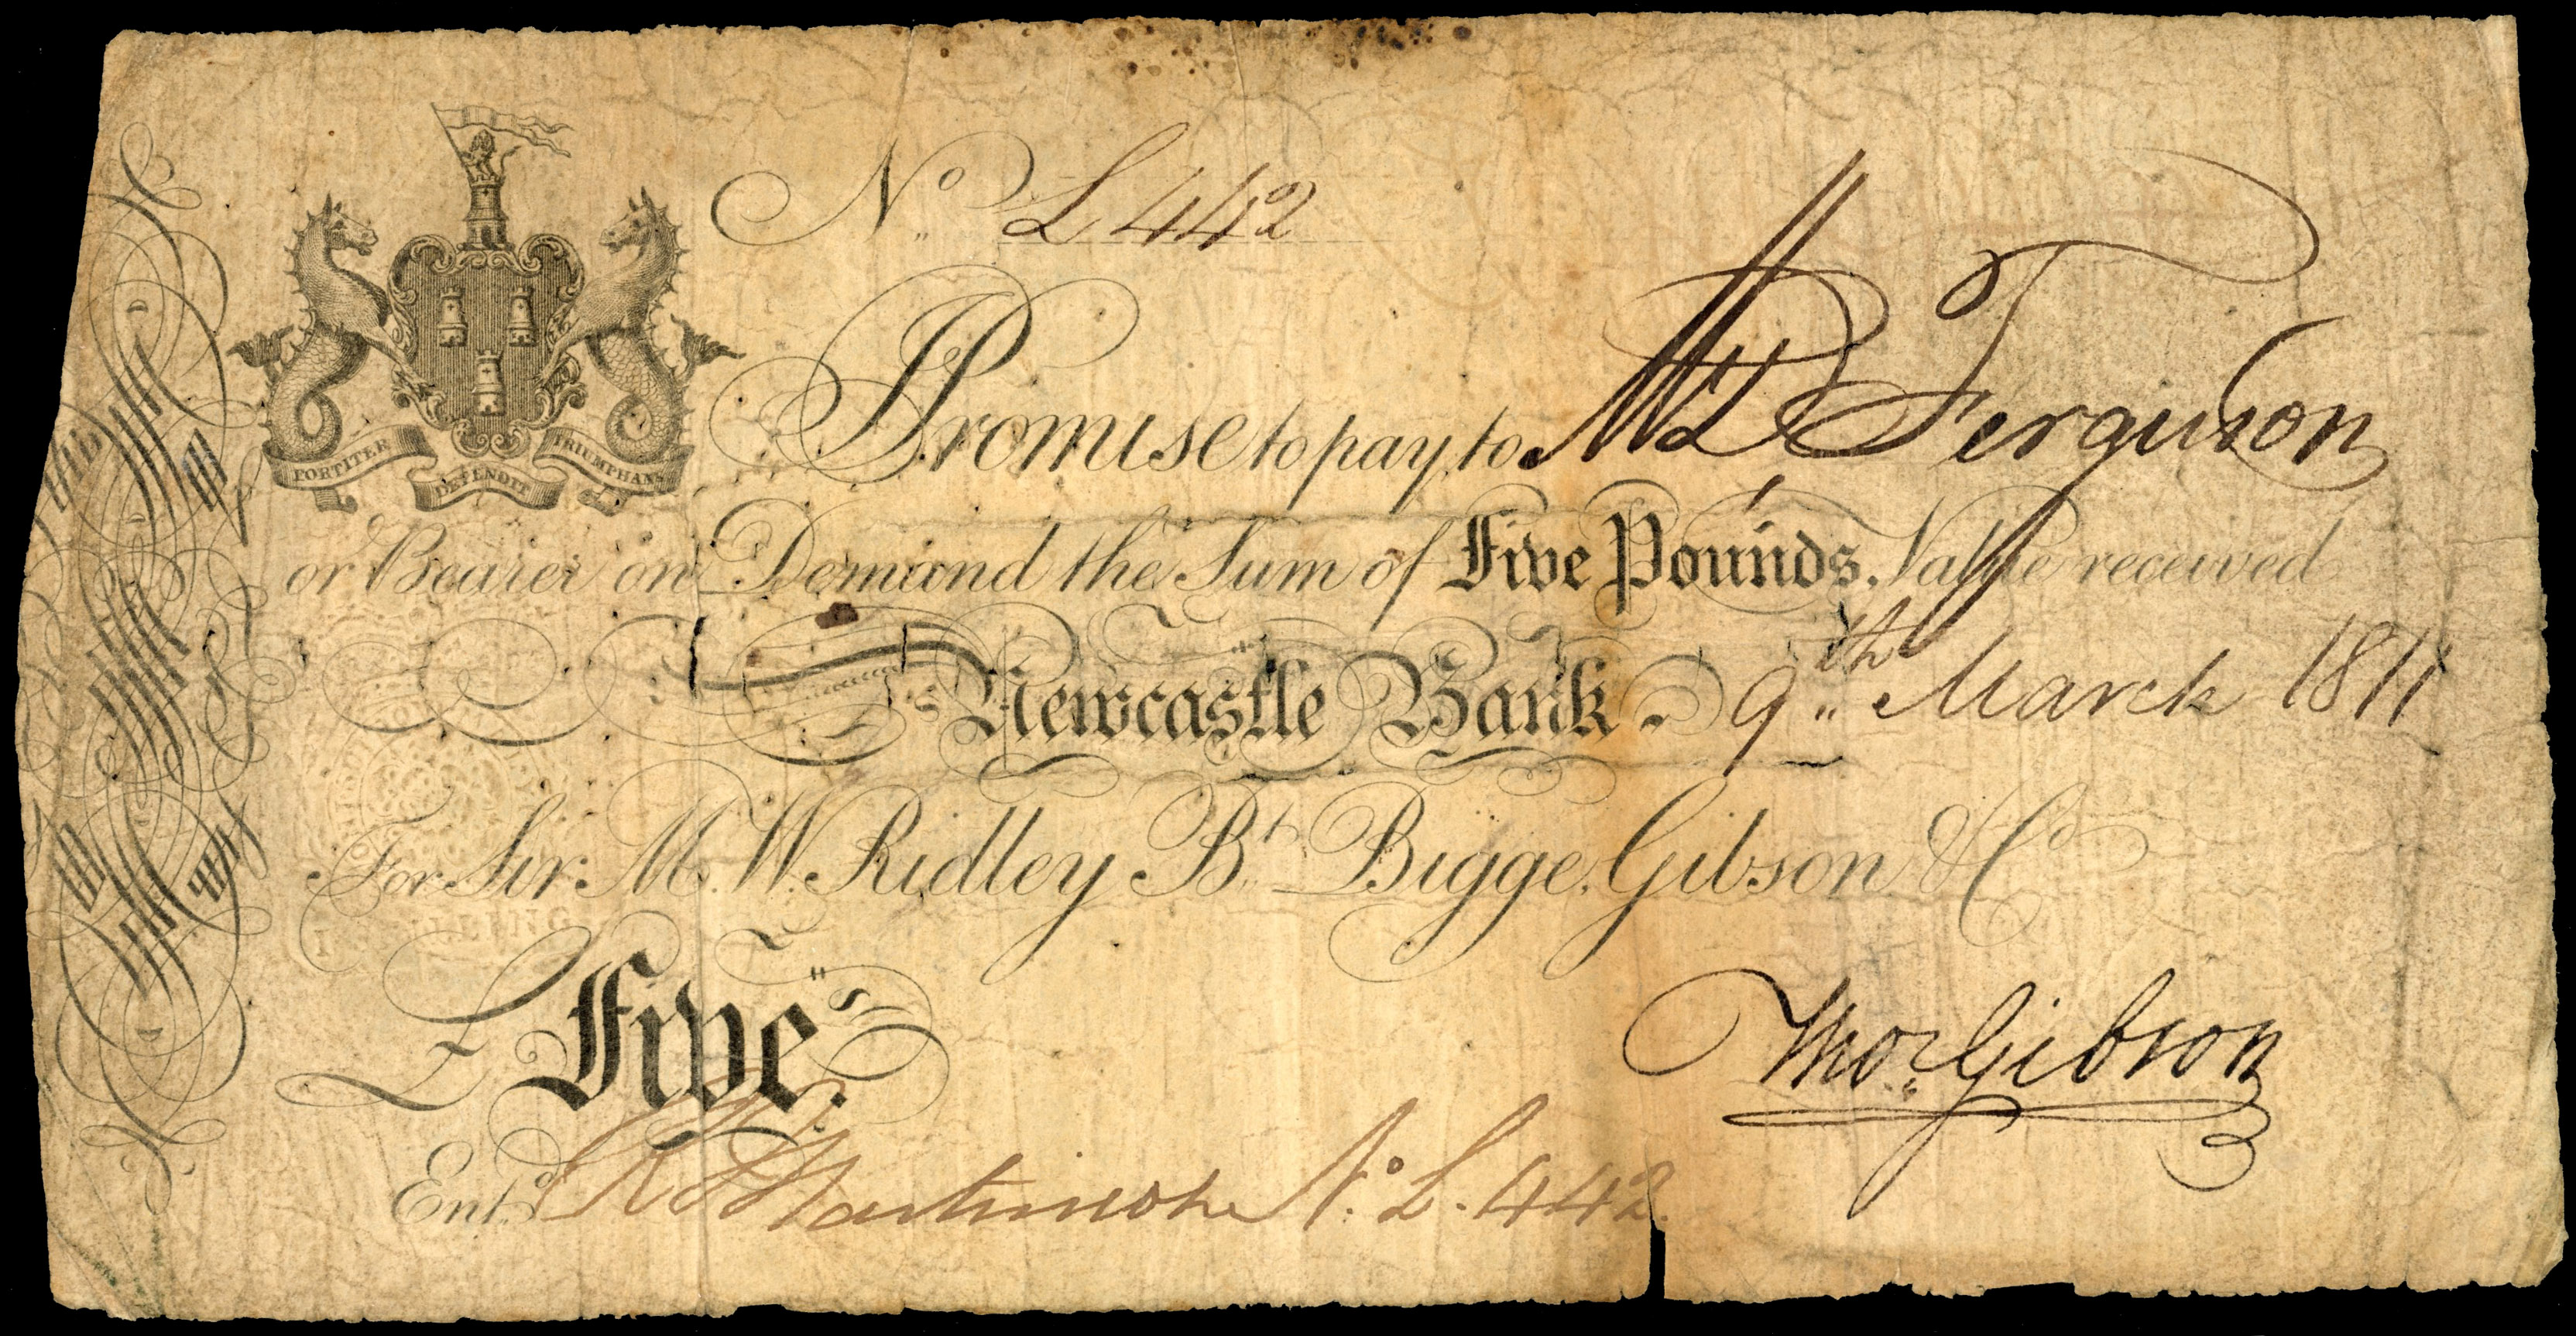 No L442
FORTITER
DEFENDIT
TRIUMPHANS
I Promise to pay to Mr D Ferguson
or Bearer on Demand the Sum of Five Pounds. Value received
Newcastle Bank. 9th March 1811
For Sir M. W. Ridley Bt Bigge, Gibson & Co
£ Five.
Thos Gibson
Entd No L. 442